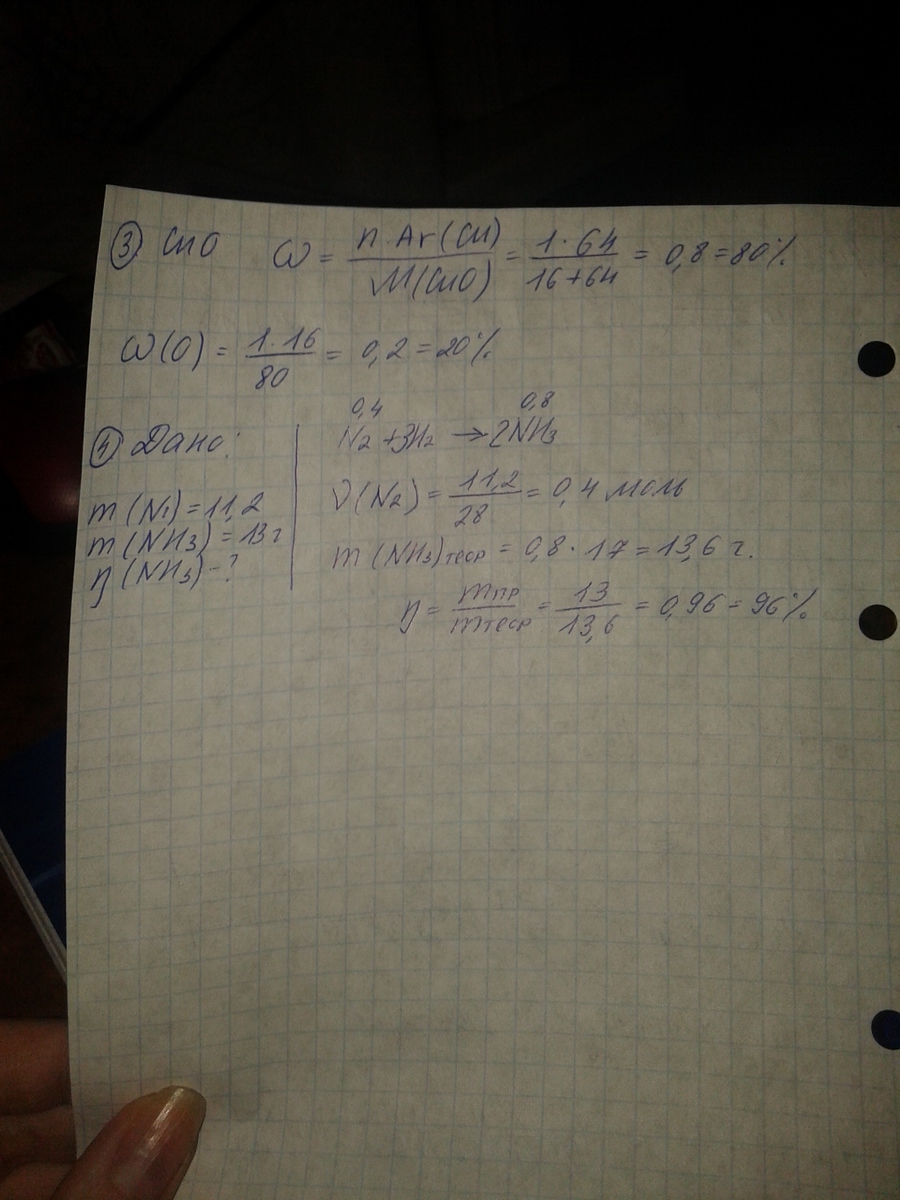 ③ CuO ω = n·Ar(Cu) / M(CuO) = 1·64 / 16+64 = 0,8 = 80%
ω(O) = 1·16 / 80 = 0,2 = 20%
④ Дано:
m(N₂) = 11,2
m(NH₃) = 13 г
η(NH₃) - ?
0,4 0,8
N₂ + 3H₂ → 2NH₃
ν(N₂) = 11,2 / 28 = 0,4 моль
m(NH₃)теор = 0,8·17 = 13,6 г.
η = mпр / mтеор = 13 / 13,6 = 0,96 = 96%